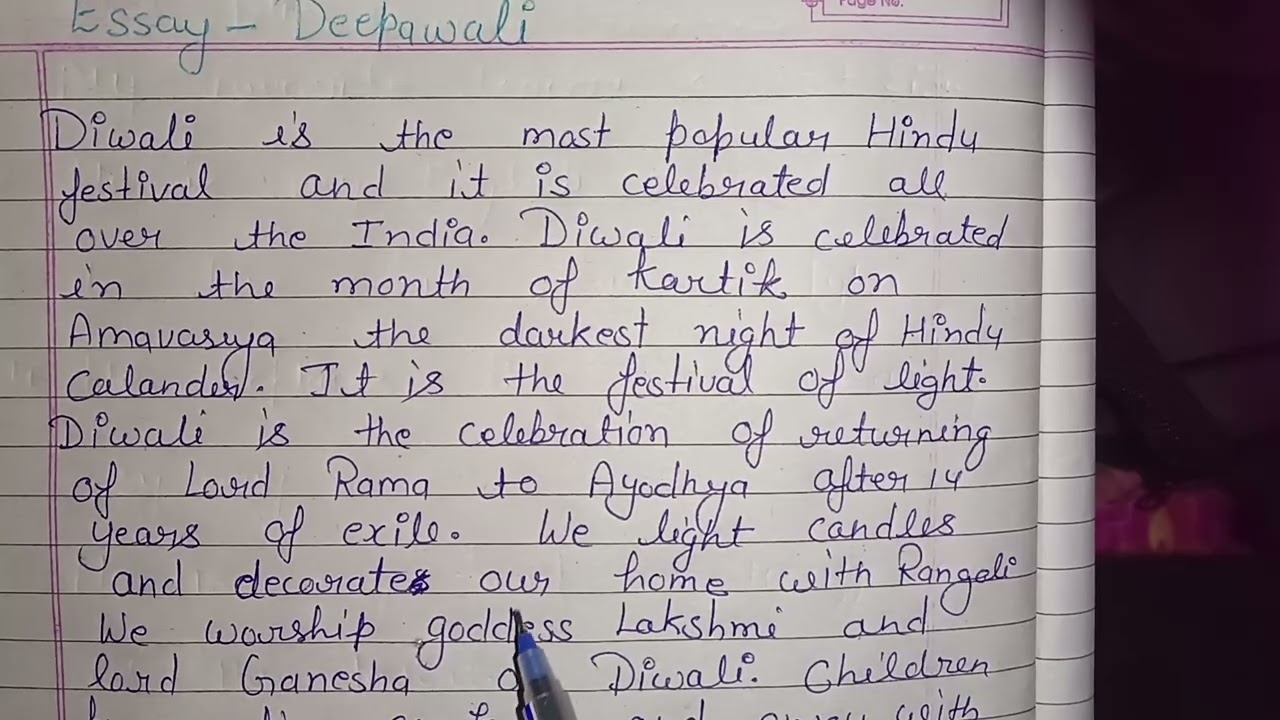 Page No.
Essay - Deepawali
Diwali is the most popular Hindu
festival and it is celebrated all
over the India. Diwali is celebrated
in the month of Kartik on
Amavasya the darkest night of Hindu
Calander. It is the festival of light.
Diwali is the celebration of returning
of Lord Rama to Ayodhya after 14
years of exile. We light candles
and decorates our home with Rangoli
We worship goddess Lakshmi and
lord Ganesha Diwali. Children
and with